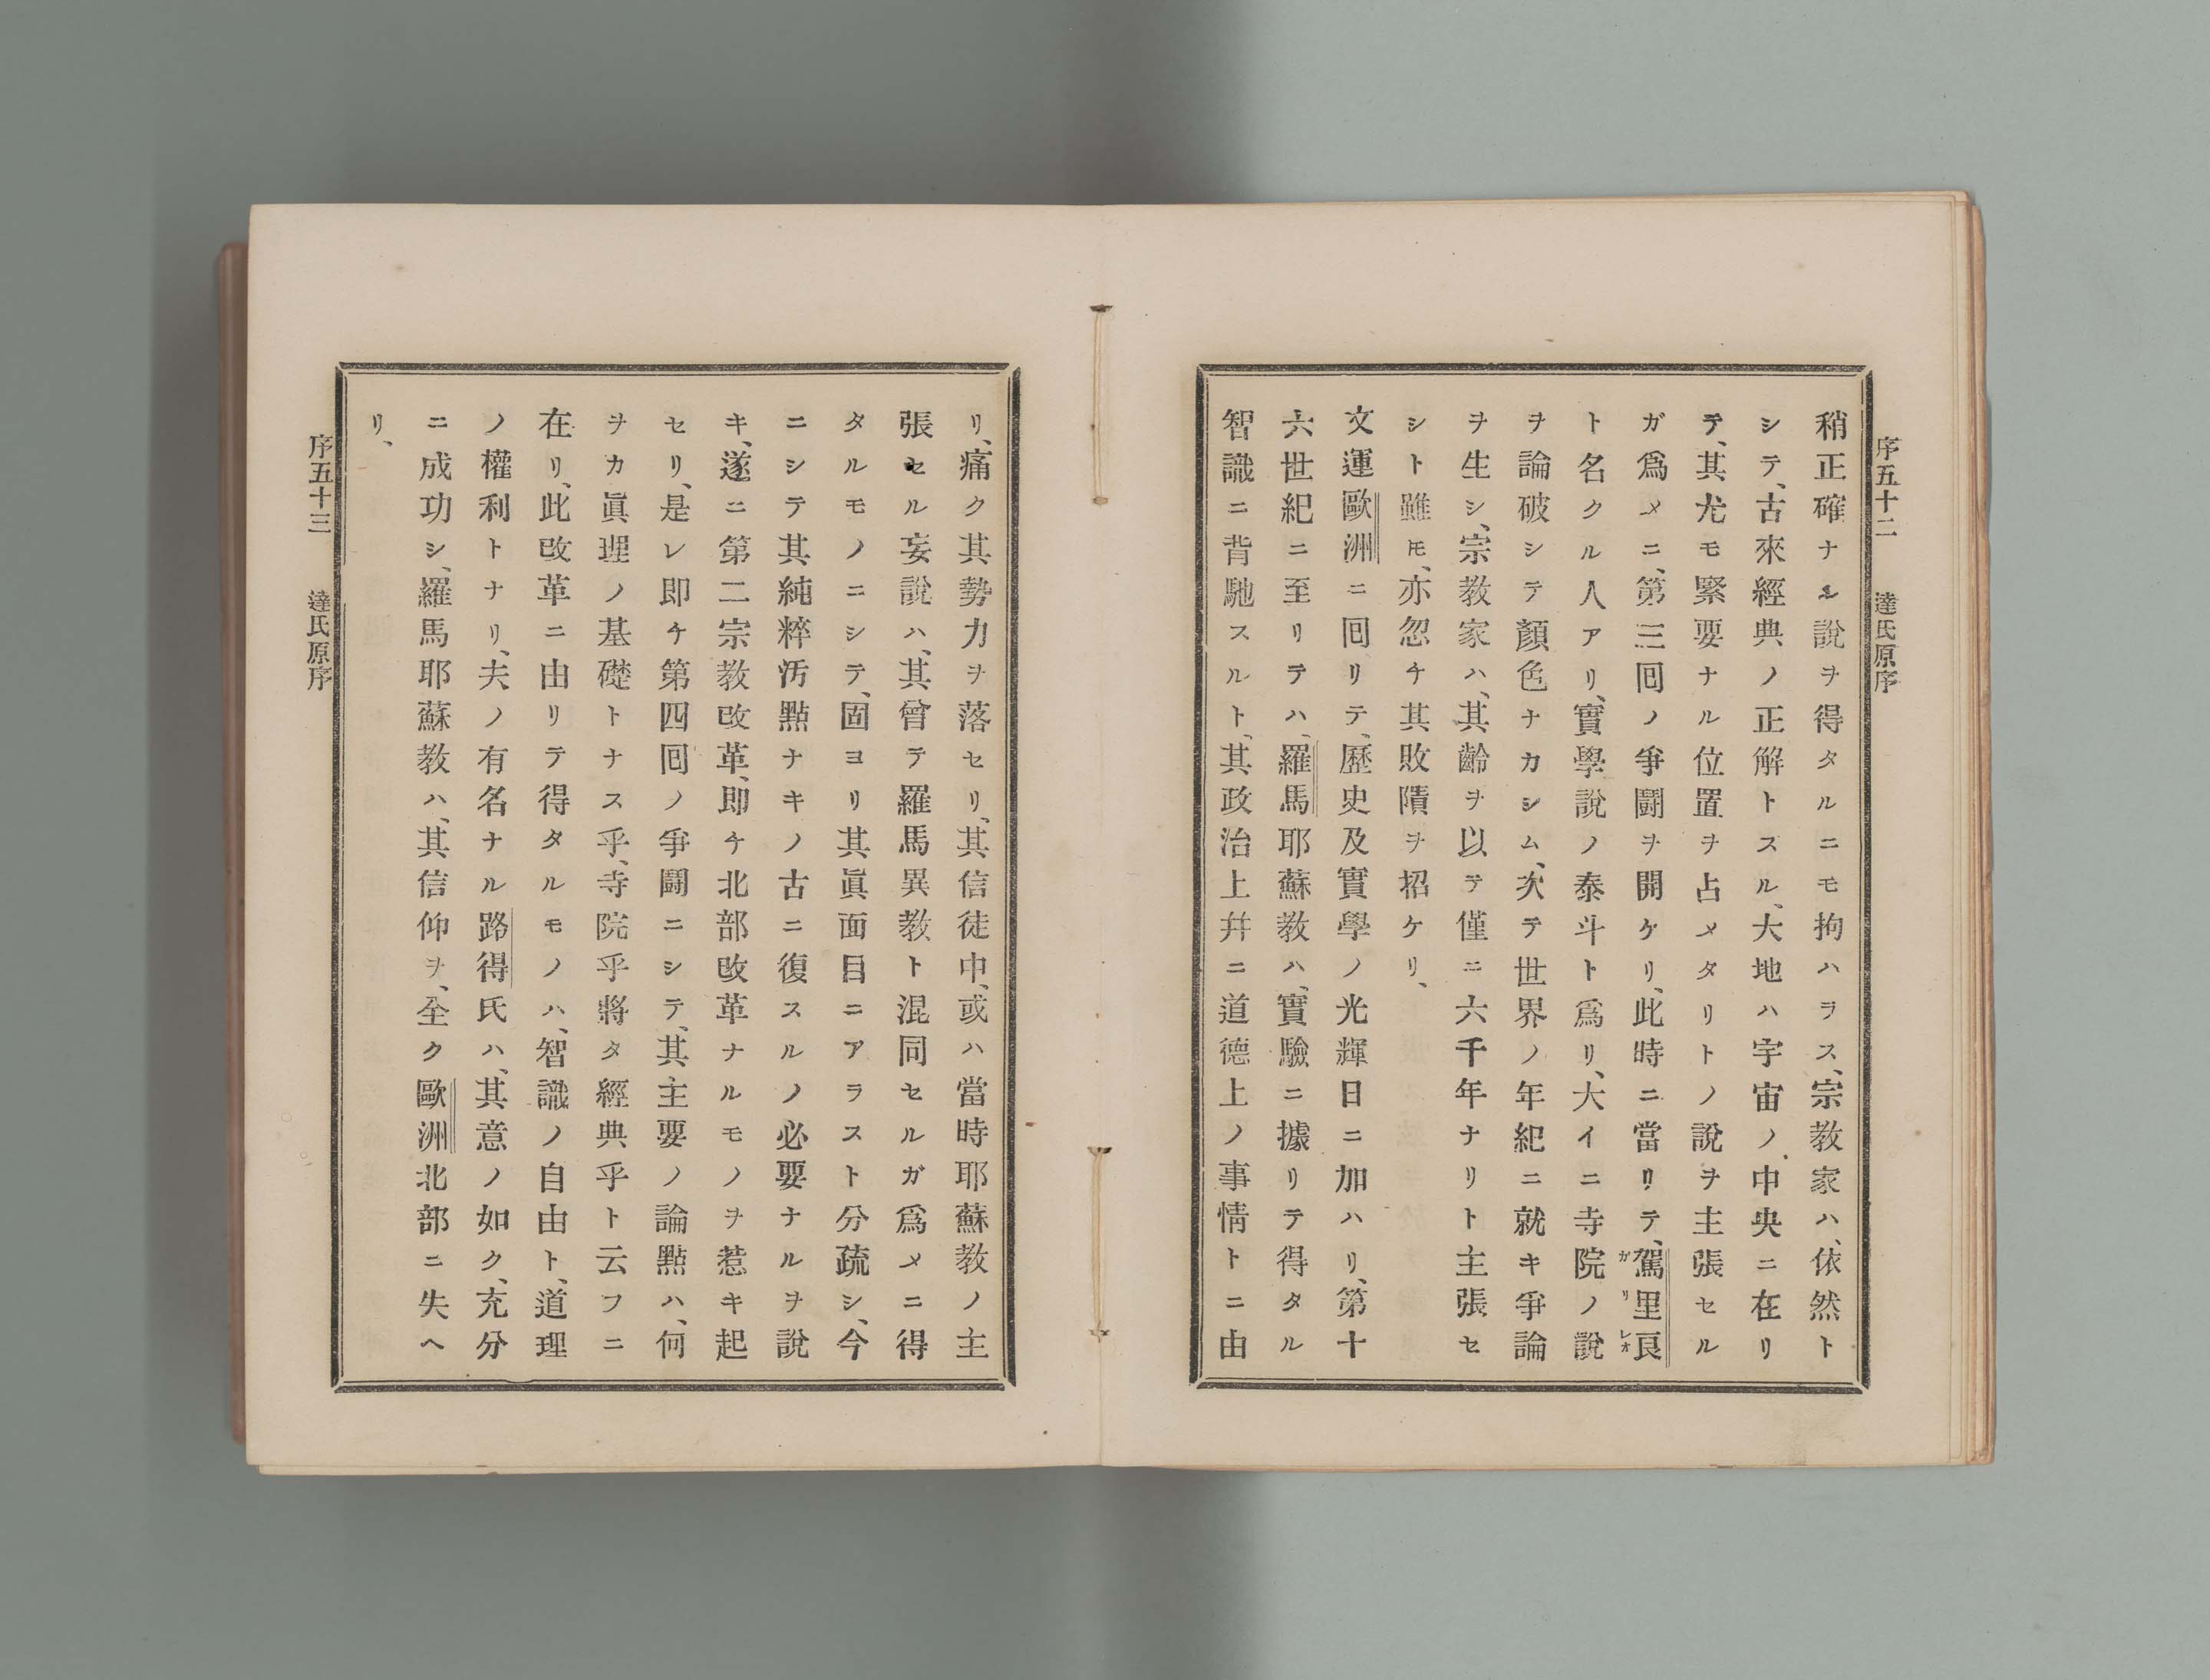 序五十二　達氏原序
稍正確ナル說ヲ得タルニモ拘ハラス、宗教家ハ、依然ト
シテ、古來經典ノ正解トスル、大地ハ宇宙ノ中央ニ在リ
テ、其尤モ緊要ナル位置ヲ占メタリトノ說ヲ主張セル
ガ爲メニ、第三囘ノ爭鬪ヲ開ケリ、此時ニ當リテ、駕里良
ガリレオ
ト名クル人アリ、實學說ノ泰斗ト爲リ、大イニ寺院ノ說
ヲ論破シテ顏色ナカシム、次テ世界ノ年紀ニ就キ爭論
ヲ生シ、宗教家ハ、其齡ヲ以テ僅ニ六千年ナリト主張セ
シト雖𪜈、亦忽チ其敗隤ヲ招ケリ、
文運歐洲ニ囘リテ、歷史及實學ノ光輝日ニ加ハリ、第十
六世紀ニ至リテハ、羅馬耶蘇教ハ、實驗ニ據リテ得タル
智識ニ背馳スルト、其政治上幷ニ道德上ノ事情トニ由
リ、痛ク其勢力ヲ落セリ、其信徒中、或ハ當時耶蘇教ノ主
張セル妄說ハ、其曾テ羅馬異教ト混同セルガ爲メニ得
タルモノニシテ、固ヨリ其眞面目ニアラスト分疏シ、今
ニシテ其純粹汚點ナキノ古ニ復スルノ必要ナルヲ說
キ、遂ニ第二宗教改革、卽チ北部改革ナルモノヲ惹キ起
セリ、是レ卽チ第四囘ノ爭鬪ニシテ、其主要ノ論點ハ、何
ヲカ眞理ノ基礎トナス乎、寺院乎將タ經典乎ト云フニ
在リ、此改革ニ由リテ得タルモノハ、智識ノ自由ト、道理
ノ權利トナリ、夫ノ有名ナル路得氏ハ、其意ノ如ク、充分
ニ成功シ、羅馬耶蘇教ハ、其信仰ヲ、全ク歐洲北部ニ失ヘ
リ、
序五十三　達氏原序